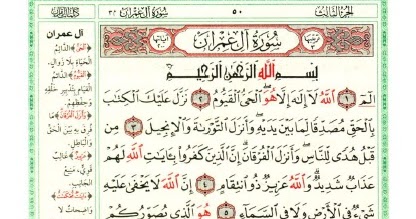 الجزء الثالث
٥٠
سورة آل عمران ٣
سورة آل عمران
بسم الله الرحمن الرحيم
الم ١ الله لا إله إلا هو الحي القيوم ٢ نزل عليك الكتاب
بالحق مصدقا لما بين يديه وأنزل التورىة والإنجيل ٣
من قبل هدى للناس وأنزل الفرقان إن الذين كفروا بـايات الله لهم
عذاب شديد والله عزيز ذو انتقام ٤ إن الله لا يخفى عليه
شيء في الأرض ولا في السماء ٥ هو الذي يصوركم
آل عمران
الحي الدائم
الحياة بلا زوال
القيوم الدائم
القيام بتدبير خلقه
وحفظهم